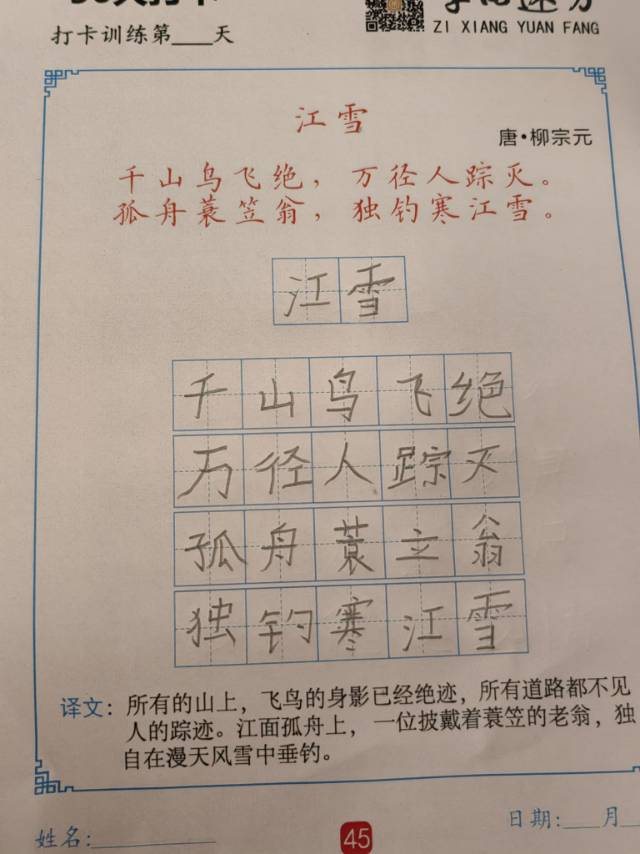 打卡训练第___天
ZI XIANG YUAN FANG
江雪
唐·柳宗元
千山鸟飞绝，万径人踪灭。
孤舟蓑笠翁，独钓寒江雪。
江雪
千山鸟飞绝
万径人踪灭
孤舟蓑立翁
独钓寒江雪
译文：所有的山上，飞鸟的身影已经绝迹，所有道路都不见
人的踪迹。江面孤舟上，一位披戴着蓑笠的老翁，独
自在漫天风雪中垂钓。
姓名：__________
45
日期：___月